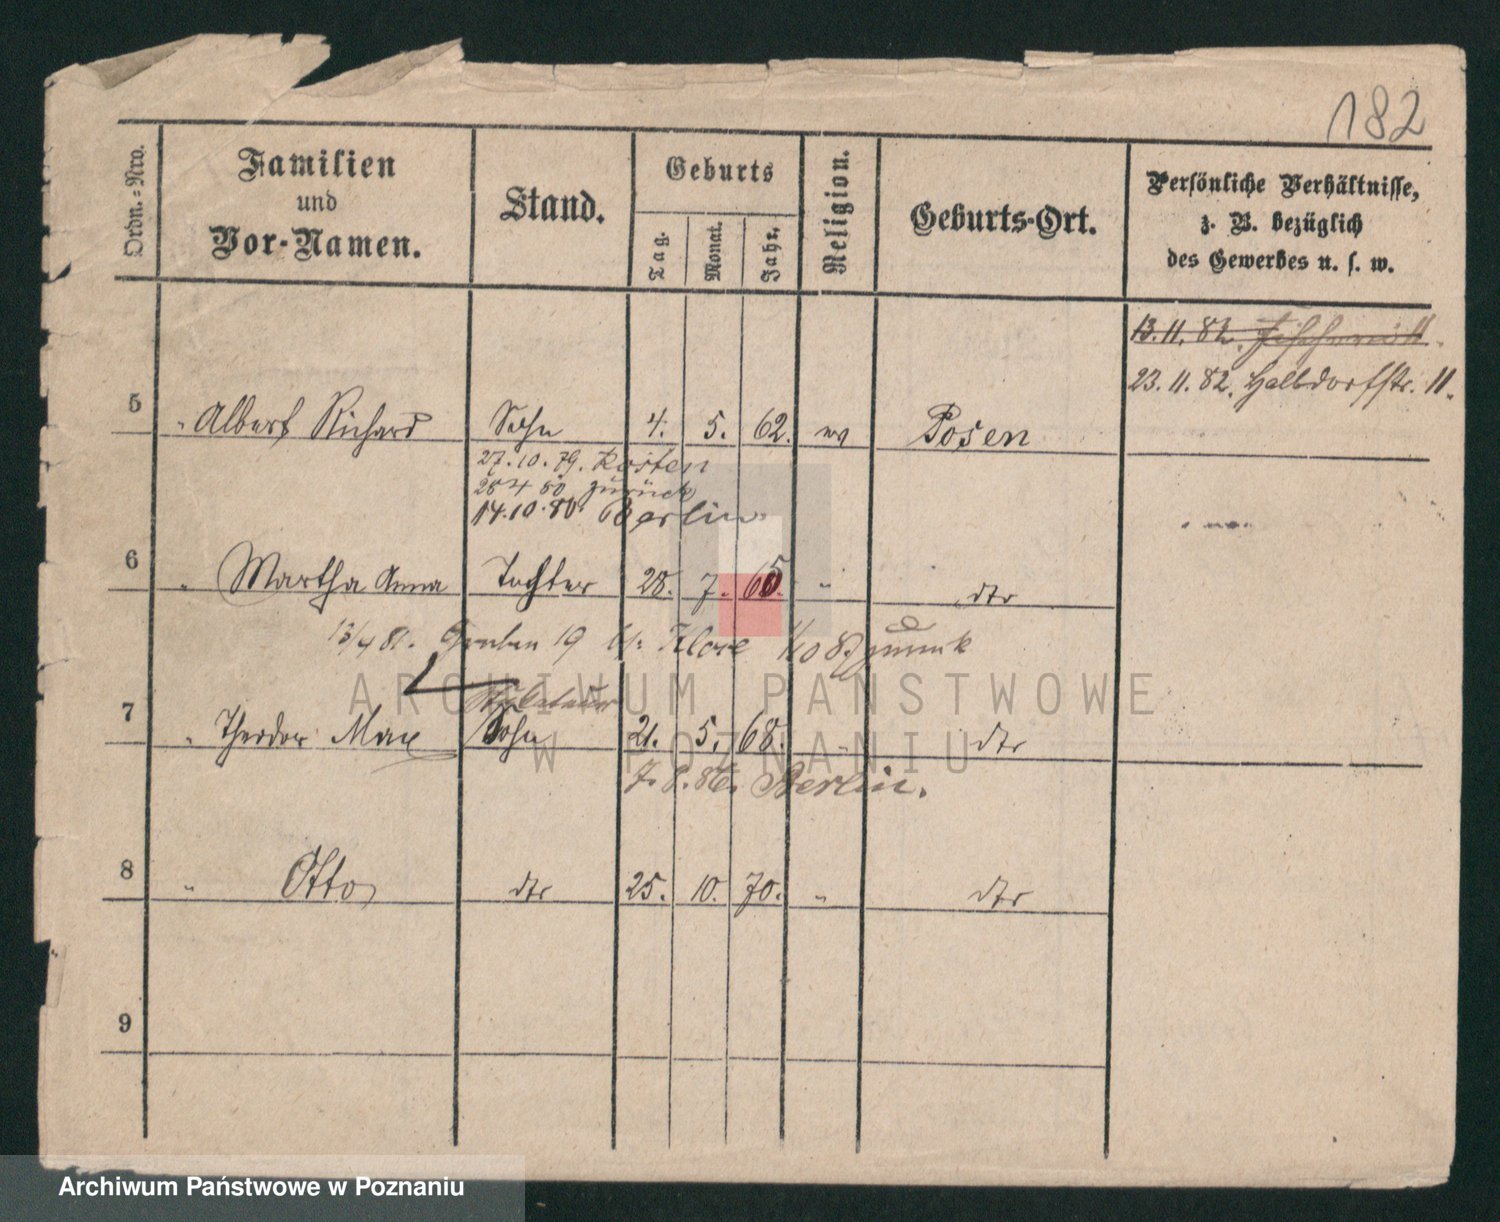 182
Ordn.-Nro.
Familien
und
Vor-Namen.
Stand.
Geburts
Tag.
Monat.
Jahr.
Religion.
Geburts-Ort.
Persönliche Verhältnisse,
z. B. bezüglich
des Gewerbes u. s. w.
13. 11. 82.
23. 11. 82. Halbdorfstr. 11.
5 " Albert Richard Sohn 4. 5. 62. ev Posen
27. 10. 79. Kosten
28 4 80 zurück
14. 10. 80. Berlin
6 " Martha Anna Tochter 28. 7. 65. " dto
13/4 81. Graben 19 bei Klose 1/10 82 zurück
7 " Theodor Max Sohn 21. 5. 68. " dto
7. 8. 86. Berlin.
8 " Otto dto 25. 10. 70. " dto
9
ARCHIWUM PAŃSTWOWE
W POZNANIU
Archiwum Państwowe w Poznaniu